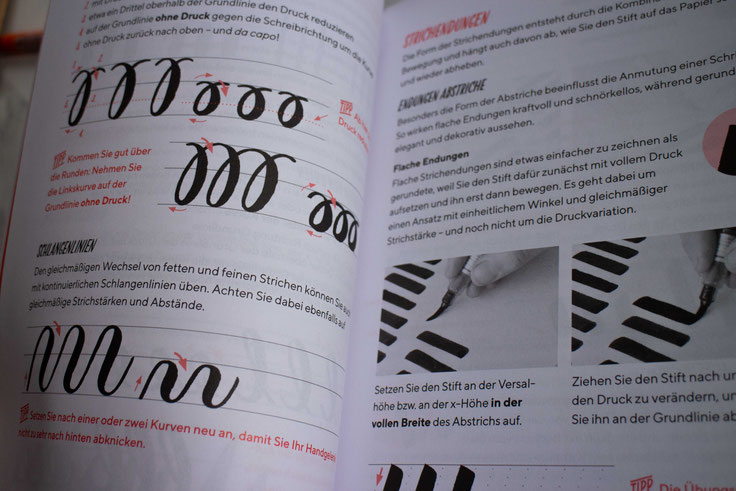 etwa ein Drittel oberhalb der Grundlinie den Druck reduzieren
auf der Grundlinie ohne Druck gegen die Schreibrichtung um die
ohne Druck zurück nach oben – und da capo!
TIPP
Druck
TIPP Kommen Sie gut über
die Runden: Nehmen Sie
die Linkskurve auf der
Grundlinie ohne Druck!
SCHLANGENLINIEN
Den gleichmäßigen Wechsel von fetten und feinen Strichen können Sie auch
mit kontinuierlichen Schlangenlinien üben. Achten Sie dabei ebenfalls auf
gleichmäßige Strichstärken und Abstände.
TIPP Setzen Sie nach einer oder zwei Kurven neu an, damit Sie Ihr Handgelenk
nicht zu sehr nach hinten abknicken.
STRICHENDUNGEN
Die Form der Strichendungen entsteht durch die
Bewegung und hängt auch davon ab, wie Sie den Stift auf das Papier
und wieder abheben.
ENDUNGEN ABSTRICHE
Besonders die Form der Abstriche beeinflusst die Anmutung einer
So wirken flache Endungen kraftvoll und schnörkellos, während
elegant und dekorativ aussehen.
Flache Endungen
Flache Strichendungen sind etwas einfacher zu zeichnen als
gerundete, weil Sie den Stift dafür zunächst mit vollem Druck
aufsetzen und ihn erst dann bewegen. Es geht dabei um
einen Ansatz mit einheitlichem Winkel und gleichmäßiger
Strichstärke – und noch nicht um die Druckvariation.
Setzen Sie den Stift an der Versal-
höhe bzw. an der x-Höhe in der
vollen Breite des Abstrichs auf.
Ziehen Sie den Stift nach
den Druck zu verändern,
Sie ihn an der Grundlinie
TIPP Die